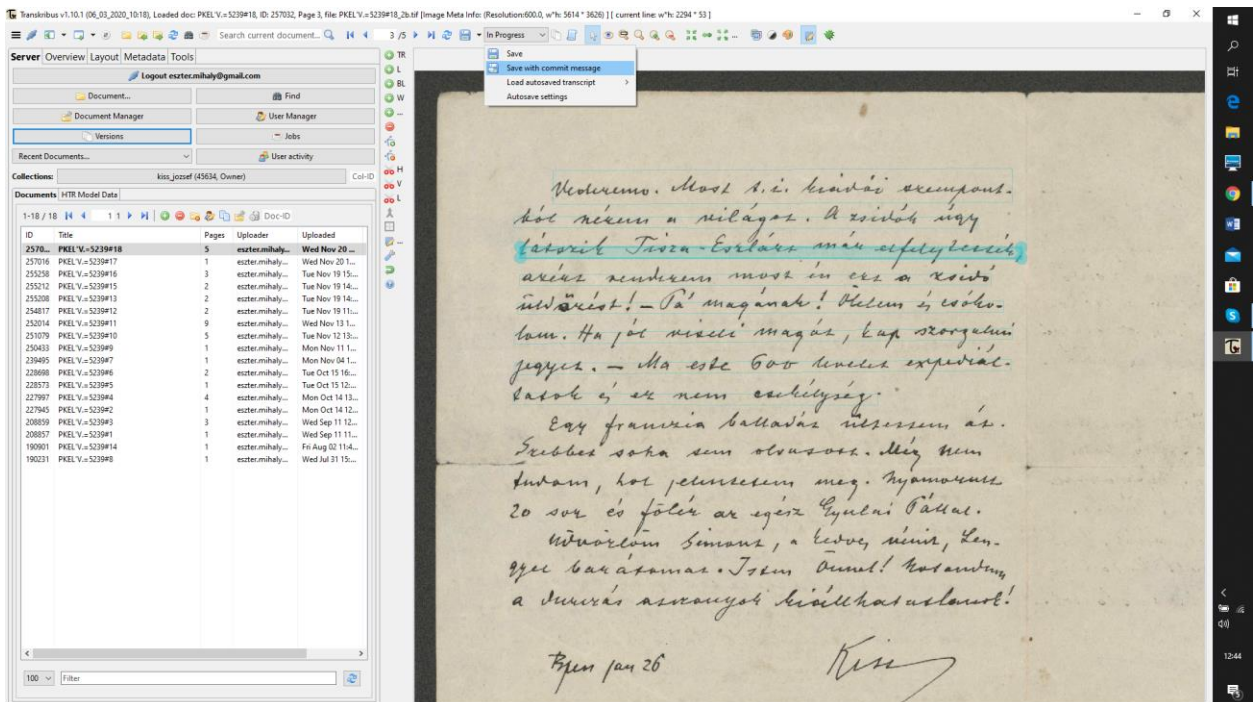 Transkribus v1.10.1 (06_03_2020_10:18), Loaded doc: PKEL'V.=5239#18, ID: 257032, Page 3, file: PKEL'V.=5239#18_2b.tif [Image Meta Info: (Resolution:600.0, w*h: 5614 * 3626) ] [ current line: w*h: 2294 * 53 ]
Search current document... 3 /5 In Progress
Server Overview Layout Metadata Tools
Logout eszter.mihaly@gmail.com
Document... Find
Document Manager User Manager
Versions Jobs
Recent Documents... User activity
Collections: kiss_jozsef (45634, Owner) Col-ID
Documents HTR Model Data
1-18 / 18 1 1 Doc-ID
ID Title Pages Uploader Uploaded
2570... PKEL'V.=5239#18 5 eszter.mihaly... Wed Nov 20 ...
257016 PKEL'V.=5239#17 1 eszter.mihaly... Wed Nov 20 1...
255258 PKEL'V.=5239#16 3 eszter.mihaly... Tue Nov 19 15:...
255212 PKEL'V.=5239#15 2 eszter.mihaly... Tue Nov 19 14:...
255208 PKEL'V.=5239#13 2 eszter.mihaly... Tue Nov 19 14:...
254817 PKEL'V.=5239#12 2 eszter.mihaly... Tue Nov 19 11:...
252014 PKEL'V.=5239#11 9 eszter.mihaly... Wed Nov 13 1...
251079 PKEL'V.=5239#10 5 eszter.mihaly... Tue Nov 12 13:...
250433 PKEL'V.=5239#9 1 eszter.mihaly... Mon Nov 11 1...
239495 PKEL'V.=5239#7 1 eszter.mihaly... Mon Nov 04 1...
228698 PKEL'V.=5239#6 2 eszter.mihaly... Tue Oct 15 16:...
228573 PKEL'V.=5239#5 1 eszter.mihaly... Tue Oct 15 12:...
227997 PKEL'V.=5239#4 4 eszter.mihaly... Mon Oct 14 13...
227945 PKEL'V.=5239#2 1 eszter.mihaly... Mon Oct 14 12...
208859 PKEL'V.=5239#3 3 eszter.mihaly... Wed Sep 11 12...
208857 PKEL'V.=5239#1 1 eszter.mihaly... Wed Sep 11 11...
190901 PKEL'V.=5239#14 1 eszter.mihaly... Fri Aug 02 11:4...
190231 PKEL'V.=5239#8 1 eszter.mihaly... Wed Jul 31 15:...
100 Filter
TR
L
BL
W
...
H
V
L
Save
Save with commit message
Load autosaved transcript
Autosave settings
Vederemo. Most t. i. kiadói szempont-
ból nézem a világot. A zsidók úgy
látszik Tisza-Eszlárt már elfelejtették
azért rendezem most én ezt a zsidó
üldözést! – Pá magának! Ölelem és csóko-
lom. Ha jól viseli magát, kap szorgalmi
jegyet. – Ma este 600 levelet expediál-
tatok és ez nem csekélység.
Egy franczia balladát ültettem át.
Szebbet soha sem olvasott. Még nem
tudom, hol jelentetem meg. Nyomorult
20 sor és fölér az egész Gyulai Pállal.
Üdvözlöm Simont, a kedves nénit, Len-
gyel barátomat. Isten Önnel!
a asszonyok kiállhatatlanok!
Bpen jan 26 Kiss
12:44